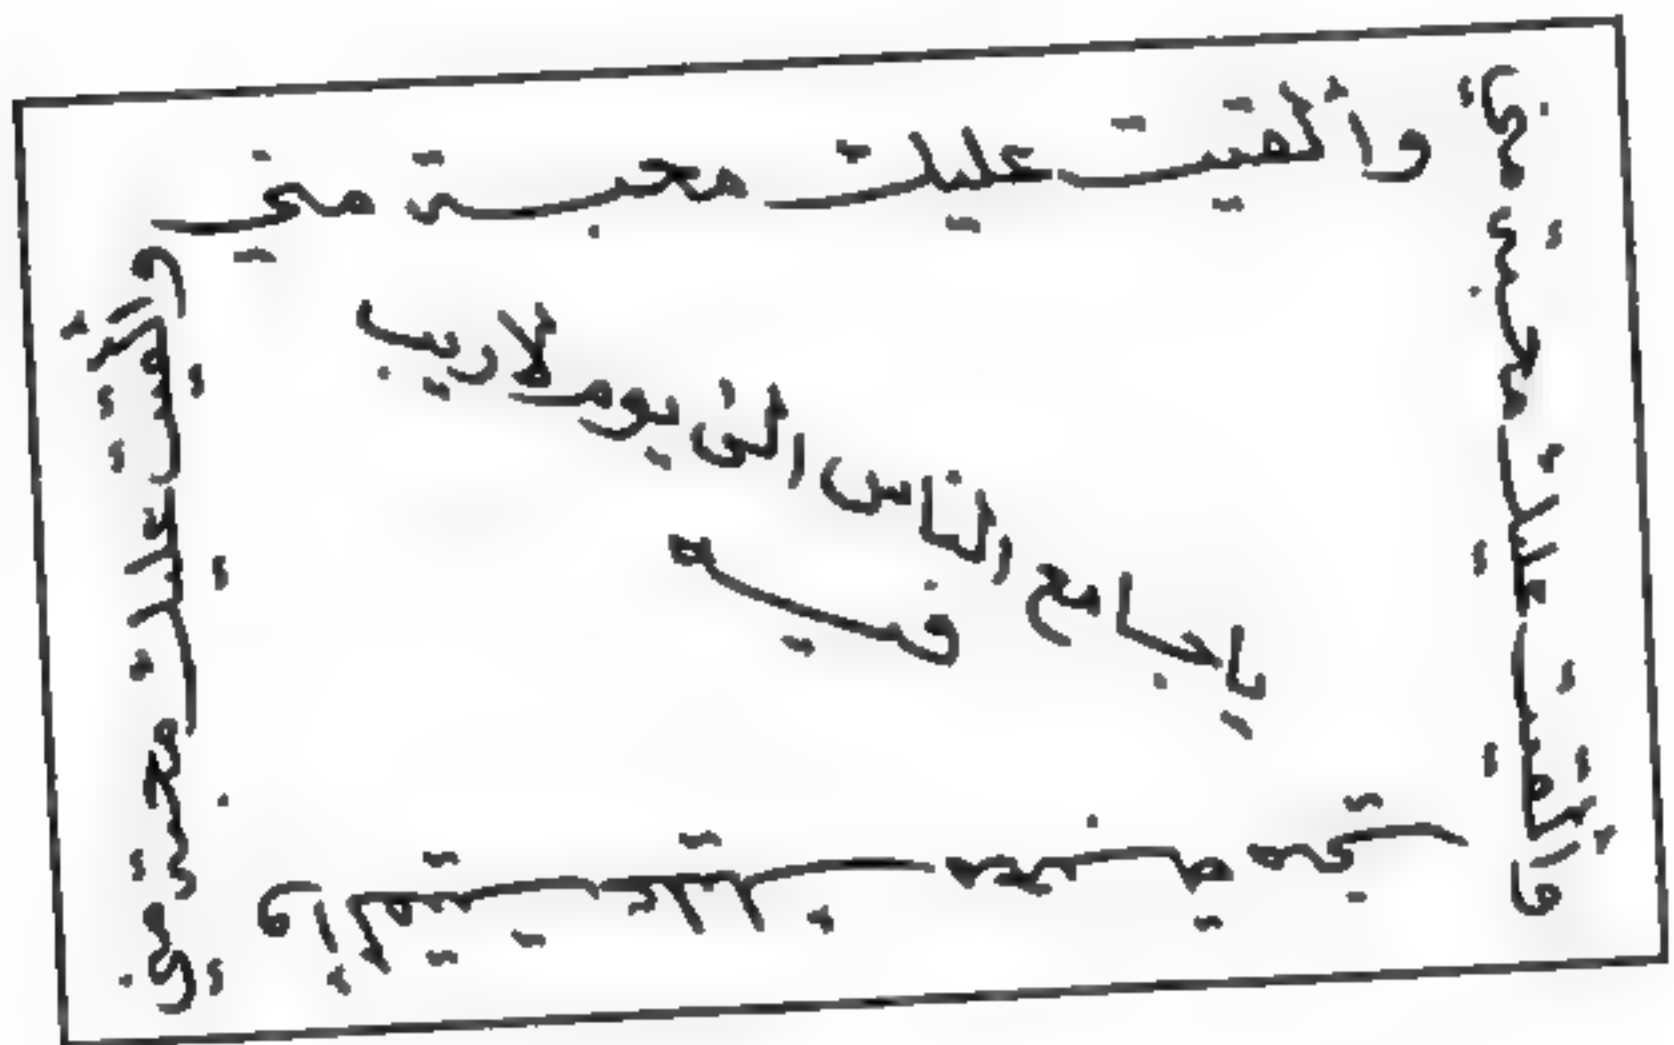 وألقيت عليك محبة مني
وألقيت عليك محبة مني
وألقيت عليك محبة مني
وألقيت عليك محبة مني
ياجامع الناس الى يوم لاريب
فيه